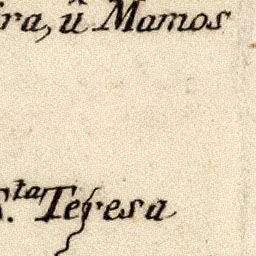 ira, û Mamos
S.ta Teresa